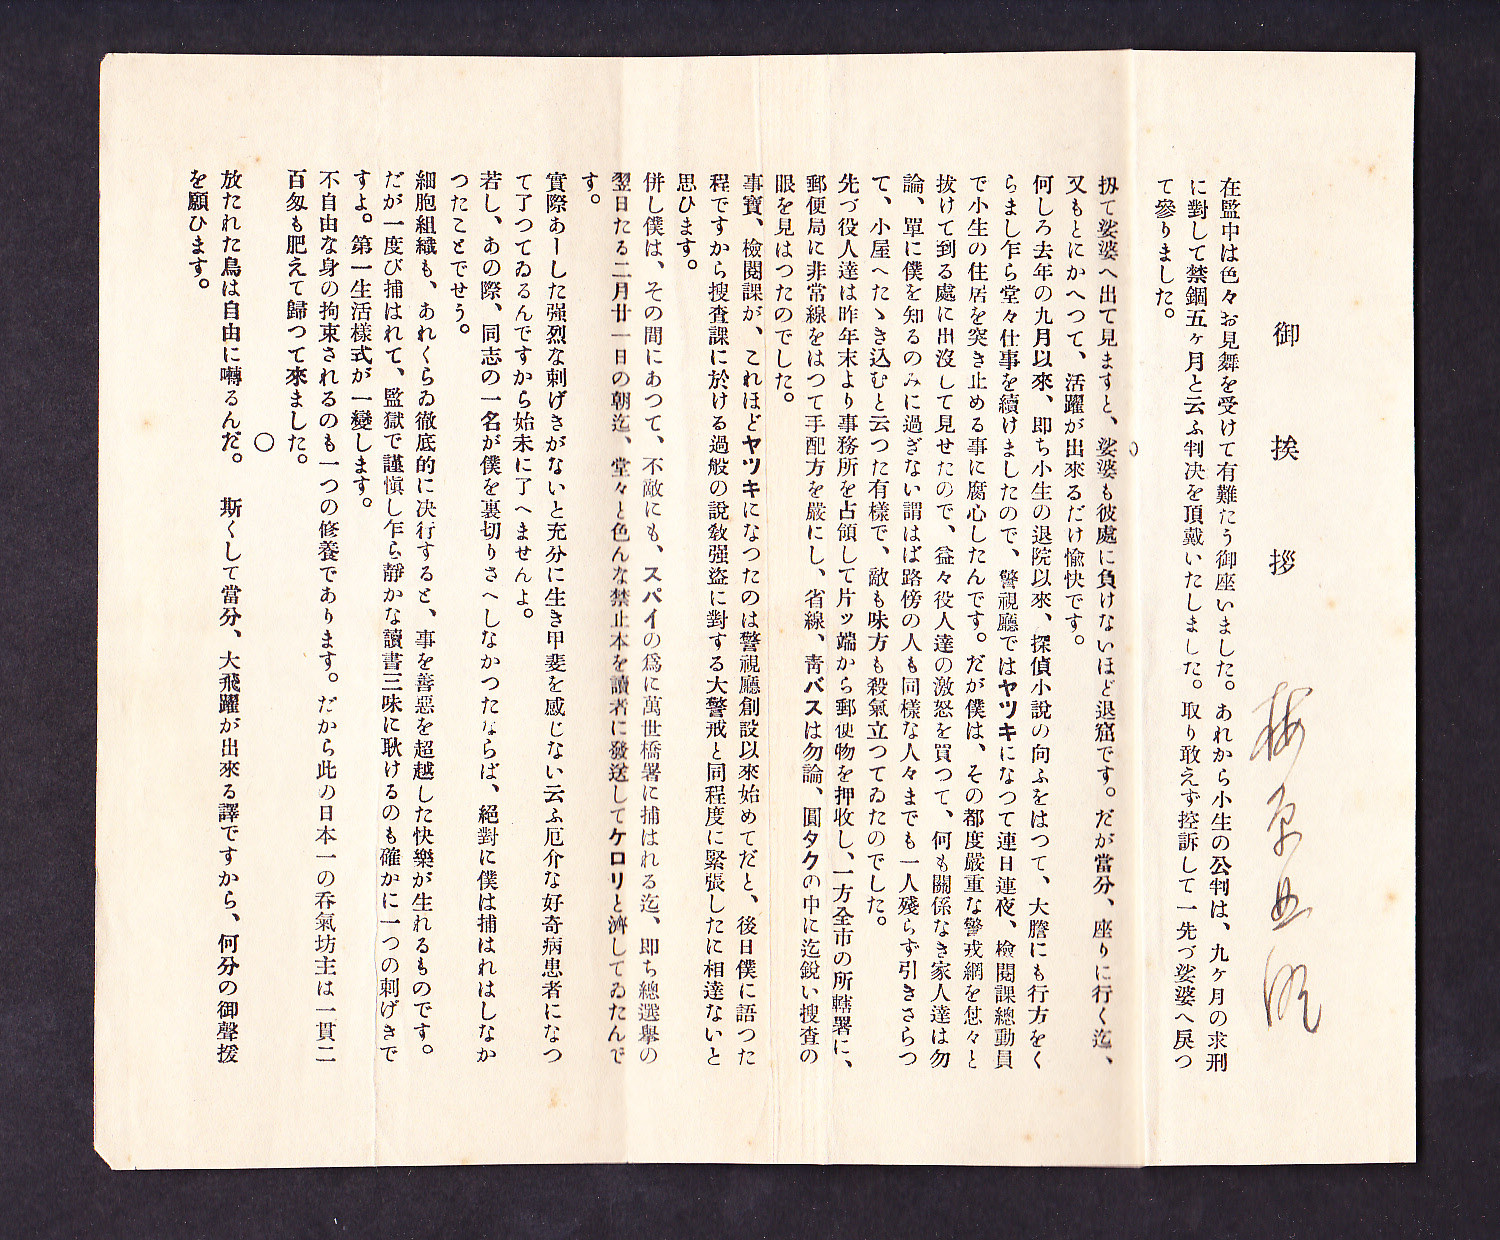 御挨拶
梅原北明
在監中は色々お見舞を受けて有難たう御座いました。あれから小生の公判は、九ヶ月の求刑
に對して禁錮五ヶ月と云ふ判決を頂戴いたしました。取り敢えず控訴して一先づ娑婆へ戾つ
て參りました。
○
扨て娑婆へ出て見ますと、娑婆も彼處に負けないほど退窟です。だが當分、座りに行く迄、
又もとにかへつて、活躍が出來るだけ愉快です。
何しろ去年の九月以來、即ち小生の退院以來、探偵小說の向ふをはつて、大膽にも行方をく
らまし乍ら堂々仕事を續けましたので、警視廳ではヤツキになつて連日連夜、檢閱課總動員
で小生の住居を突き止める事に腐心したんです。だが僕は、その都度嚴重な警戎網を悠々と
拔けて到る處に出沒して見せたので、益々役人達の激怒を買つて、何も關係なき家人達は勿
論、單に僕を知るのみに過ぎない謂はば路傍の人も同樣な人々までも一人殘らず引きさらつ
て、小屋へたゝき込むと云つた有樣で、敵も味方も殺氣立つてゐたのでした。
先づ役人達は昨年末より事務所を占領して片ッ端から郵便物を押收し、一方全市の所轄署に、
郵便局に非常線をはつて手配方を嚴にし、省線、靑バスは勿論、圓タクの中に迄銳い搜査の
眼を見はつたのでした。
事寶、檢閱課が、これほどヤツキになつたのは警視廳創設以來始めてだと、後日僕に語つた
程ですから搜査課に於ける過般の說敎强盜に對する大警戒と同程度に緊張したに相違ないと
思ひます。
併し僕は、その間にあつて、不敵にも、スパイの爲に萬世橋署に捕はれる迄、即ち總選擧の
翌日たる二月廿一日の朝迄、堂々と色んな禁止本を讀者に發送してケロリと濟してゐたんで
す。
實際あーした强烈な刺げきがないと充分に生き甲斐を感じない云ふ厄介な好奇病患者になつ
て了つてゐるんですから始末に了へませんよ。
若し、あの際、同志の一名が僕を裏切りさへしなかつたならば、絕對に僕は捕はれはしなか
つたことでせう。
細胞組織も、あれくらゐ徹底的に决行すると、事を善惡を超越した快樂が生れるものです。
だが一度び捕はれて、監獄で謹愼し乍ら靜かな讀書三昧に耿けるのも確かに一つの刺げきで
すよ。第一生活樣式が一變します。
不自由な身の拘束されるのも一つの修養であります。だから此の日本一の呑氣坊主は一貫二
百匁も肥えて歸つて來ました。
○
放たれた鳥は自由に囀るんだ。　斯くして當分、大飛躍が出來る譯ですから、何分の御聲援
を願ひます。